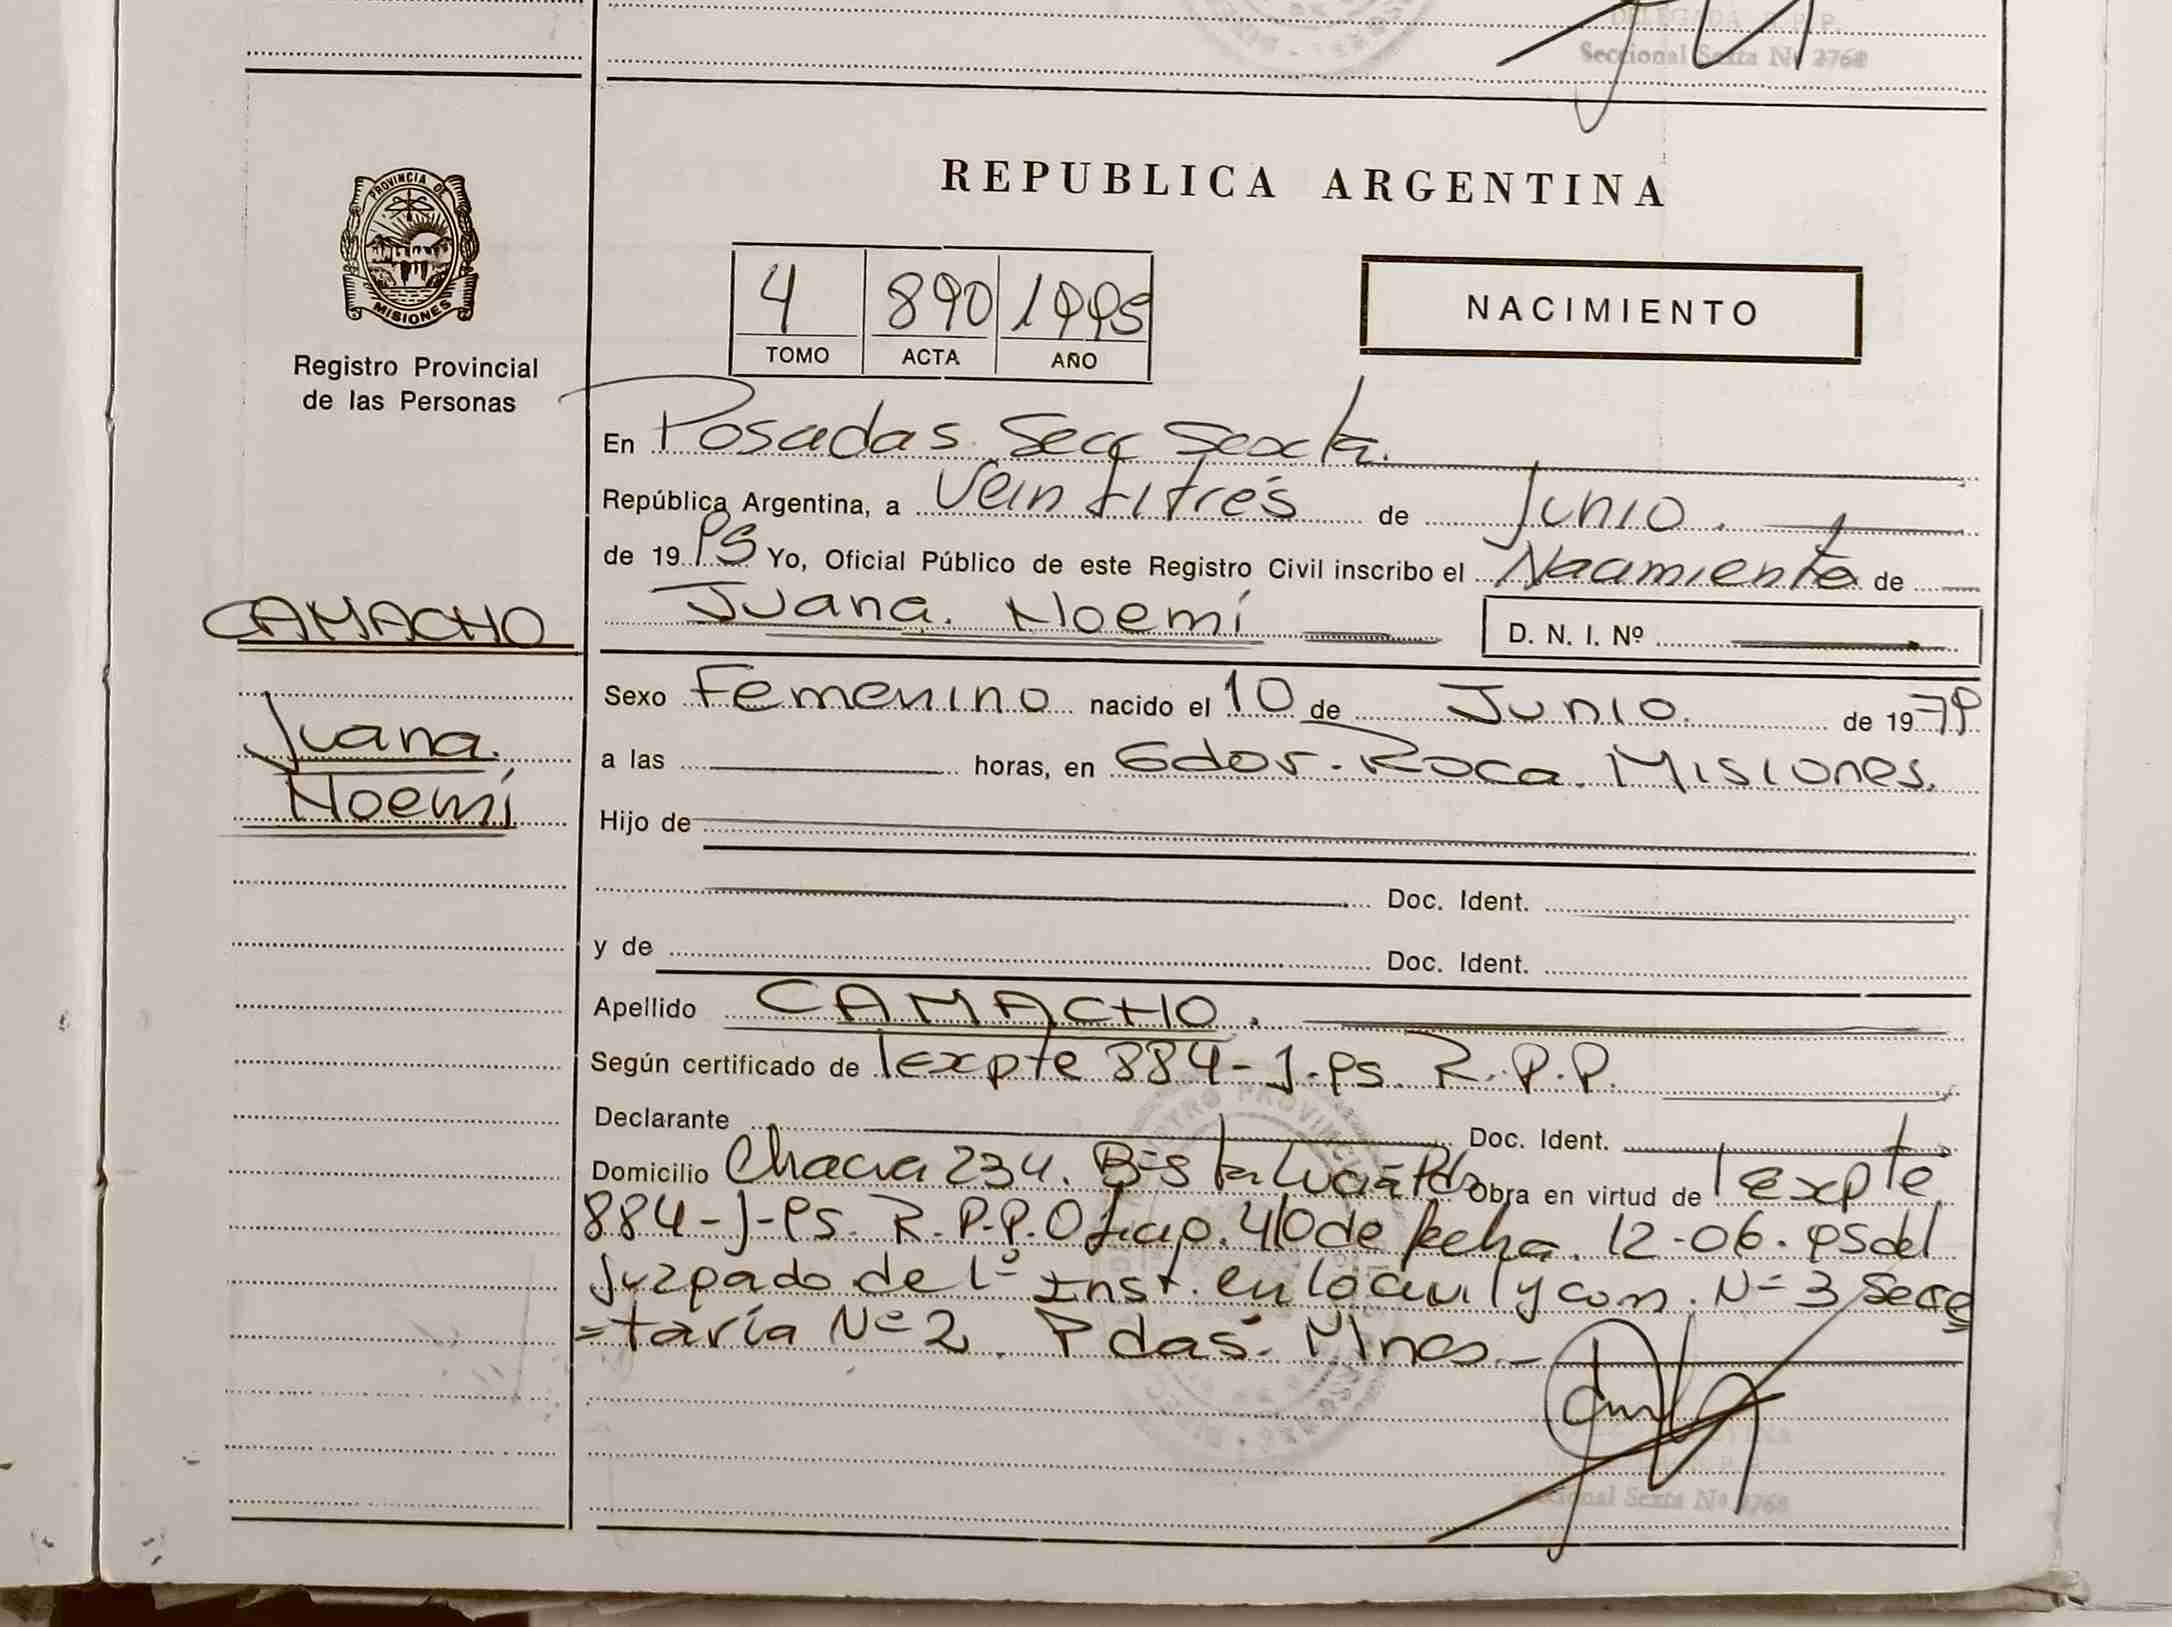 DELEGADA R.P.P.
Seccional Sexta Nº 2768
PROVINCIA DE
MISIONES
Registro Provincial
de las Personas
REPUBLICA ARGENTINA
4 890 1995
TOMO ACTA AÑO
NACIMIENTO
En Posadas Secc Sexta.
República Argentina, a Veintitrés de Junio.
de 1995 Yo, Oficial Público de este Registro Civil inscribo el Nacimiento de
CAMACHO
Juana Noemí
D. N. I. Nº
Juana. Noemí
Sexo Femenino nacido el 10 de Junio. de 1979
a las horas, en Gdor. Roca. Misiones.
Hijo de
Doc. Ident.
y de Doc. Ident.
Apellido CAMACHO.
Según certificado de expte 884-J-95. R.P.P.
Declarante Doc. Ident.
Domicilio Chacra 234. Obra en virtud de expte
884-J-95. R.P.P. Oficio. 410 de fecha. 12-06-95 del
Juzgado de 1º Inst. en lo civil y com. Nº 3 Secre
=taría Nº 2. Pdas. Mnes.-
Seccional Sexta Nº 2768